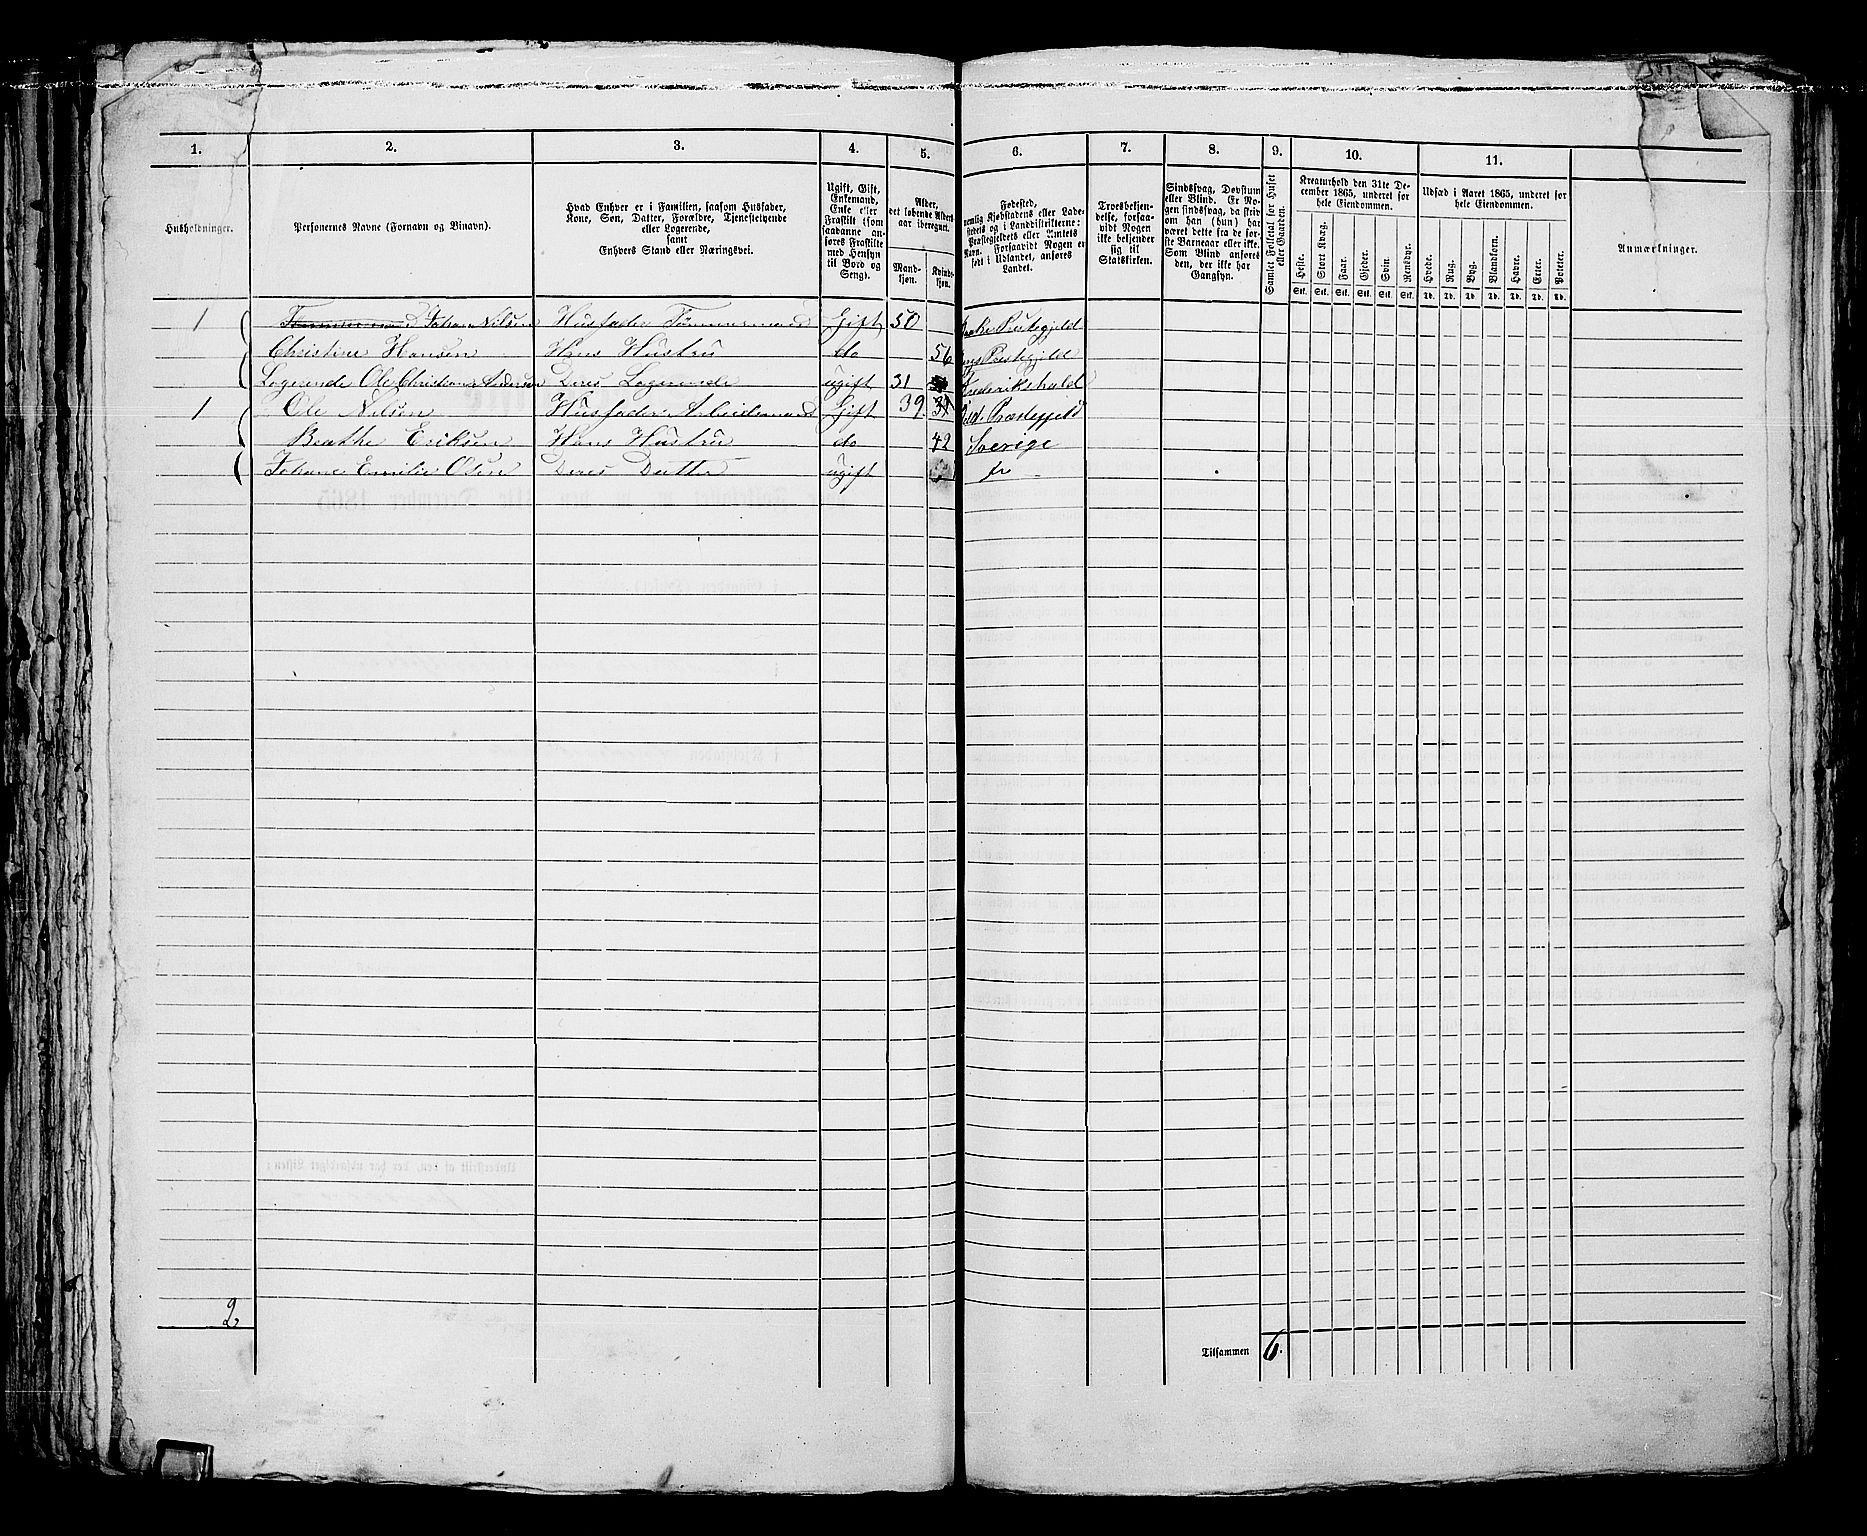 1. 2. 3. 4. 5. 6. 7. 8. 9. 10. 11.
Husholdninger.
Personernes Navne (Fornavn og Binavn).
Hvad Enhver er i Familien, saasom Husfader,
Kone, Søn, Datter, Forældre, Tjenestetyende
eller Logerende,
samt
Enhvers Stand eller Næringsvei.
Ugift, Gift,
Enkemand,
Enke eller
Fraskilt (som
saadanne an-
føres Fraskilte
med Hensyn
til Bord og
Seng).
Alder,
det løbende Alders-
aar iberegnet.
Mand-
kjøn.
Kvinde-
kjøn.
Fødested,
nemlig Kjøbstadens eller Lade-
stedets og i Landdistrikterne:
Præstegjeldets eller Amtets
Navn. Forsaavidt Nogen er
født i Udlandet, anføres
Landet.
Troesbekjen-
delse, forsaa-
vidt Nogen
ikke bekjender
sig til
Statskirken.
Sindssvag, Døvstum
eller Blind. Er No-
gen sindssvag, da skriv
om han (hun) har
været dette fra de før-
ste Barneaar eller ikke.
Som Blind anføres
den, der ikke har
Gangsyn.
Samlet Folketal for Huset
eller Gaarden.
Kreaturhold den 31te De-
cember 1865, underet for
hele Eiendommen.
Heste. Stort Kvæg. Faar. Gjeder. Svin. Rensdyr.
Stk. Stk. Stk. Stk. Stk. Stk.
Udsæd i Aaret 1865, underet for
hele Eiendommen.
Hvede. Rug. Byg. Blandkorn. Havre. Erter. Poteter.
Td. Td. Td. Td. Td. Td. Td.
Anmærkninger.
1 Tømmermand Johan Nilsen Husfader Tømmermand Gift 50 Prestegjeld
Christine Hansen Hans Hustru do 56 Prestegjeld
Logerende Ole Christian Andersen Deres Logerende ugift 31 Frederikshald
1 Ole Nilsen Husfader Arbeidsmand Gift 39 Præstegjeld
Beathe Eriksen Hans Hustru do 42 Sverige
Johane Emilie Olsen Deres Datter ugift
2
Tilsammen 6.